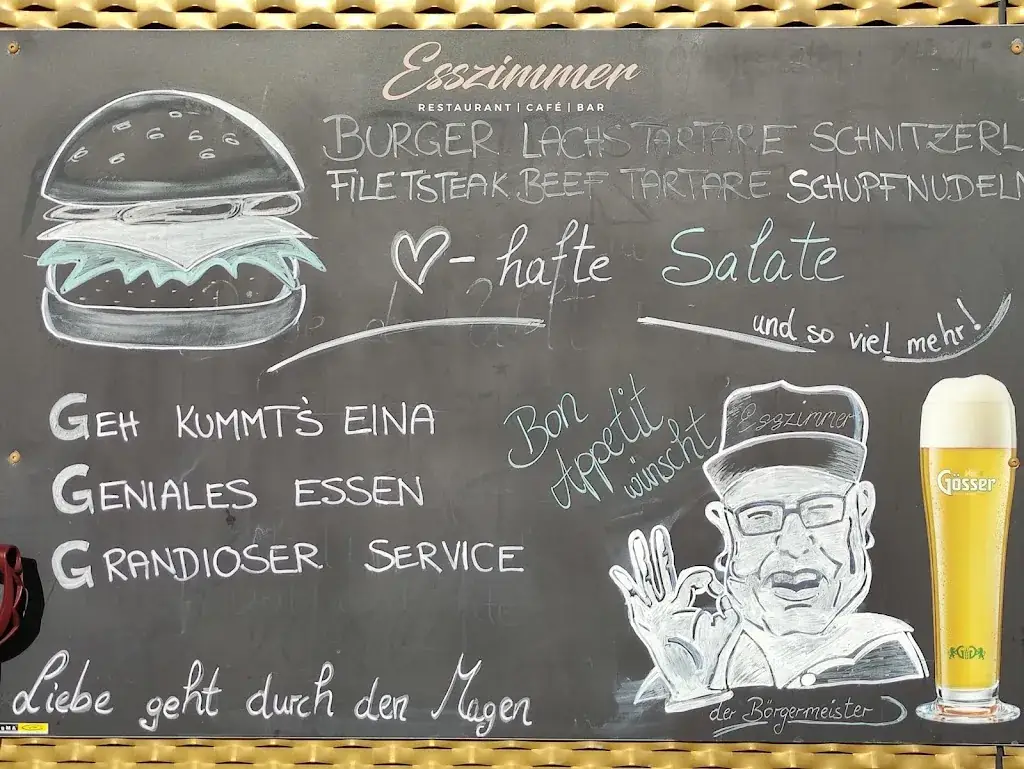 Esszimmer
RESTAURANT | CAFÉ | BAR
BURGER LACHSTARTARE SCHNITZERL
FILETSTEAK BEEF TARTARE SCHUPFNUDELN
♡-hafte Salate
und so viel mehr!
GEH KUMMT'S EINA
GENIALES ESSEN
GRANDIOSER SERVICE
Bon
Appetit
wünscht
Esszimmer
Gösser
der Börgermeister
Liebe geht durch den Magen